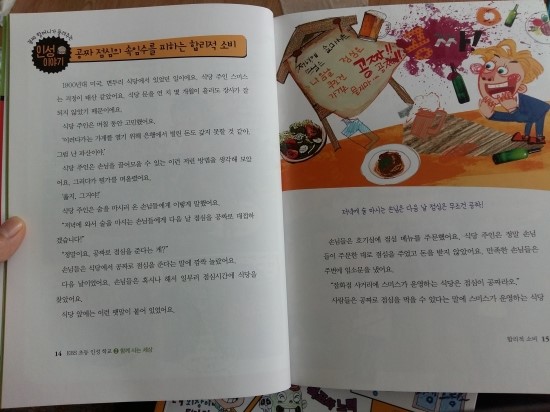 인성
이야기
공짜 점심의 속임수를 피하는 합리적 소비
1900년대 미국, 변두리 식당에서 있었던 일이에요. 식당 주인 스미스
는 걱정이 태산 같았어요. 식당 문을 연 지 몇 개월이 흘러도 장사가 잘
되지 않았기 때문이에요.
식당 주인은 며칠 동안 고민했어요.
'이러다가는 가게를 열기 위해 은행에서 빌린 돈도 갚지 못할 것 같아.
그럼 난 파산이야.'
식당 주인은 손님을 끌어모을 수 있는 이런 저런 방법을 생각해 보았
어요. 그러다가 뭔가를 떠올렸어요.
'옳지, 그거야!'
식당 주인은 술을 마시러 온 손님들에게 이렇게 말했어요.
"저녁에 와서 술을 마시는 손님들에게 다음 날 점심을 공짜로 대접하
겠습니다!"
"정말이요, 공짜로 점심을 준다는 게?"
손님들은 식당에서 공짜로 점심을 준다는 말에 깜짝 놀랐어요.
다음 날이었어요. 손님들은 혹시나 해서 일부러 점심시간에 식당을
찾았어요.
식당 앞에는 이런 팻말이 붙어 있었어요.
14 EBS 초등 인성 학교 2 함께 사는 세상
공짜!!
저녁에 술 마시는 손님은 다음 날 점심은 무조건 공짜!
손님들은 호기심에 점심 메뉴를 주문했어요. 식당 주인은 정말 손님
들이 주문한 대로 점심을 주었고 돈을 받지 않았어요. 만족한 손님들은
주변에 입소문을 냈어요.
"잠화점 사거리에 스미스가 운영하는 식당은 점심이 공짜라오."
사람들은 공짜로 점심을 먹을 수 있다는 말에 스미스가 운영하는 식당
합리적 소비 15